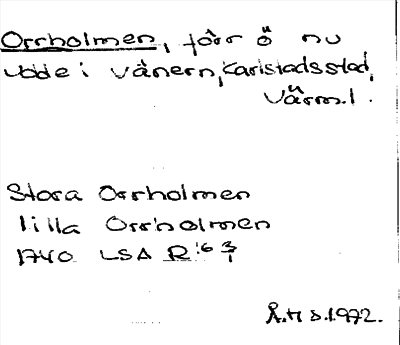 Orrholmen, förr ö nu
udde i Vänern, Karlstads stad,
Värml.
Stora Orrholmen
lilla Orrholmen
1740 LSA R 16 3/1
Å.H s.1972.